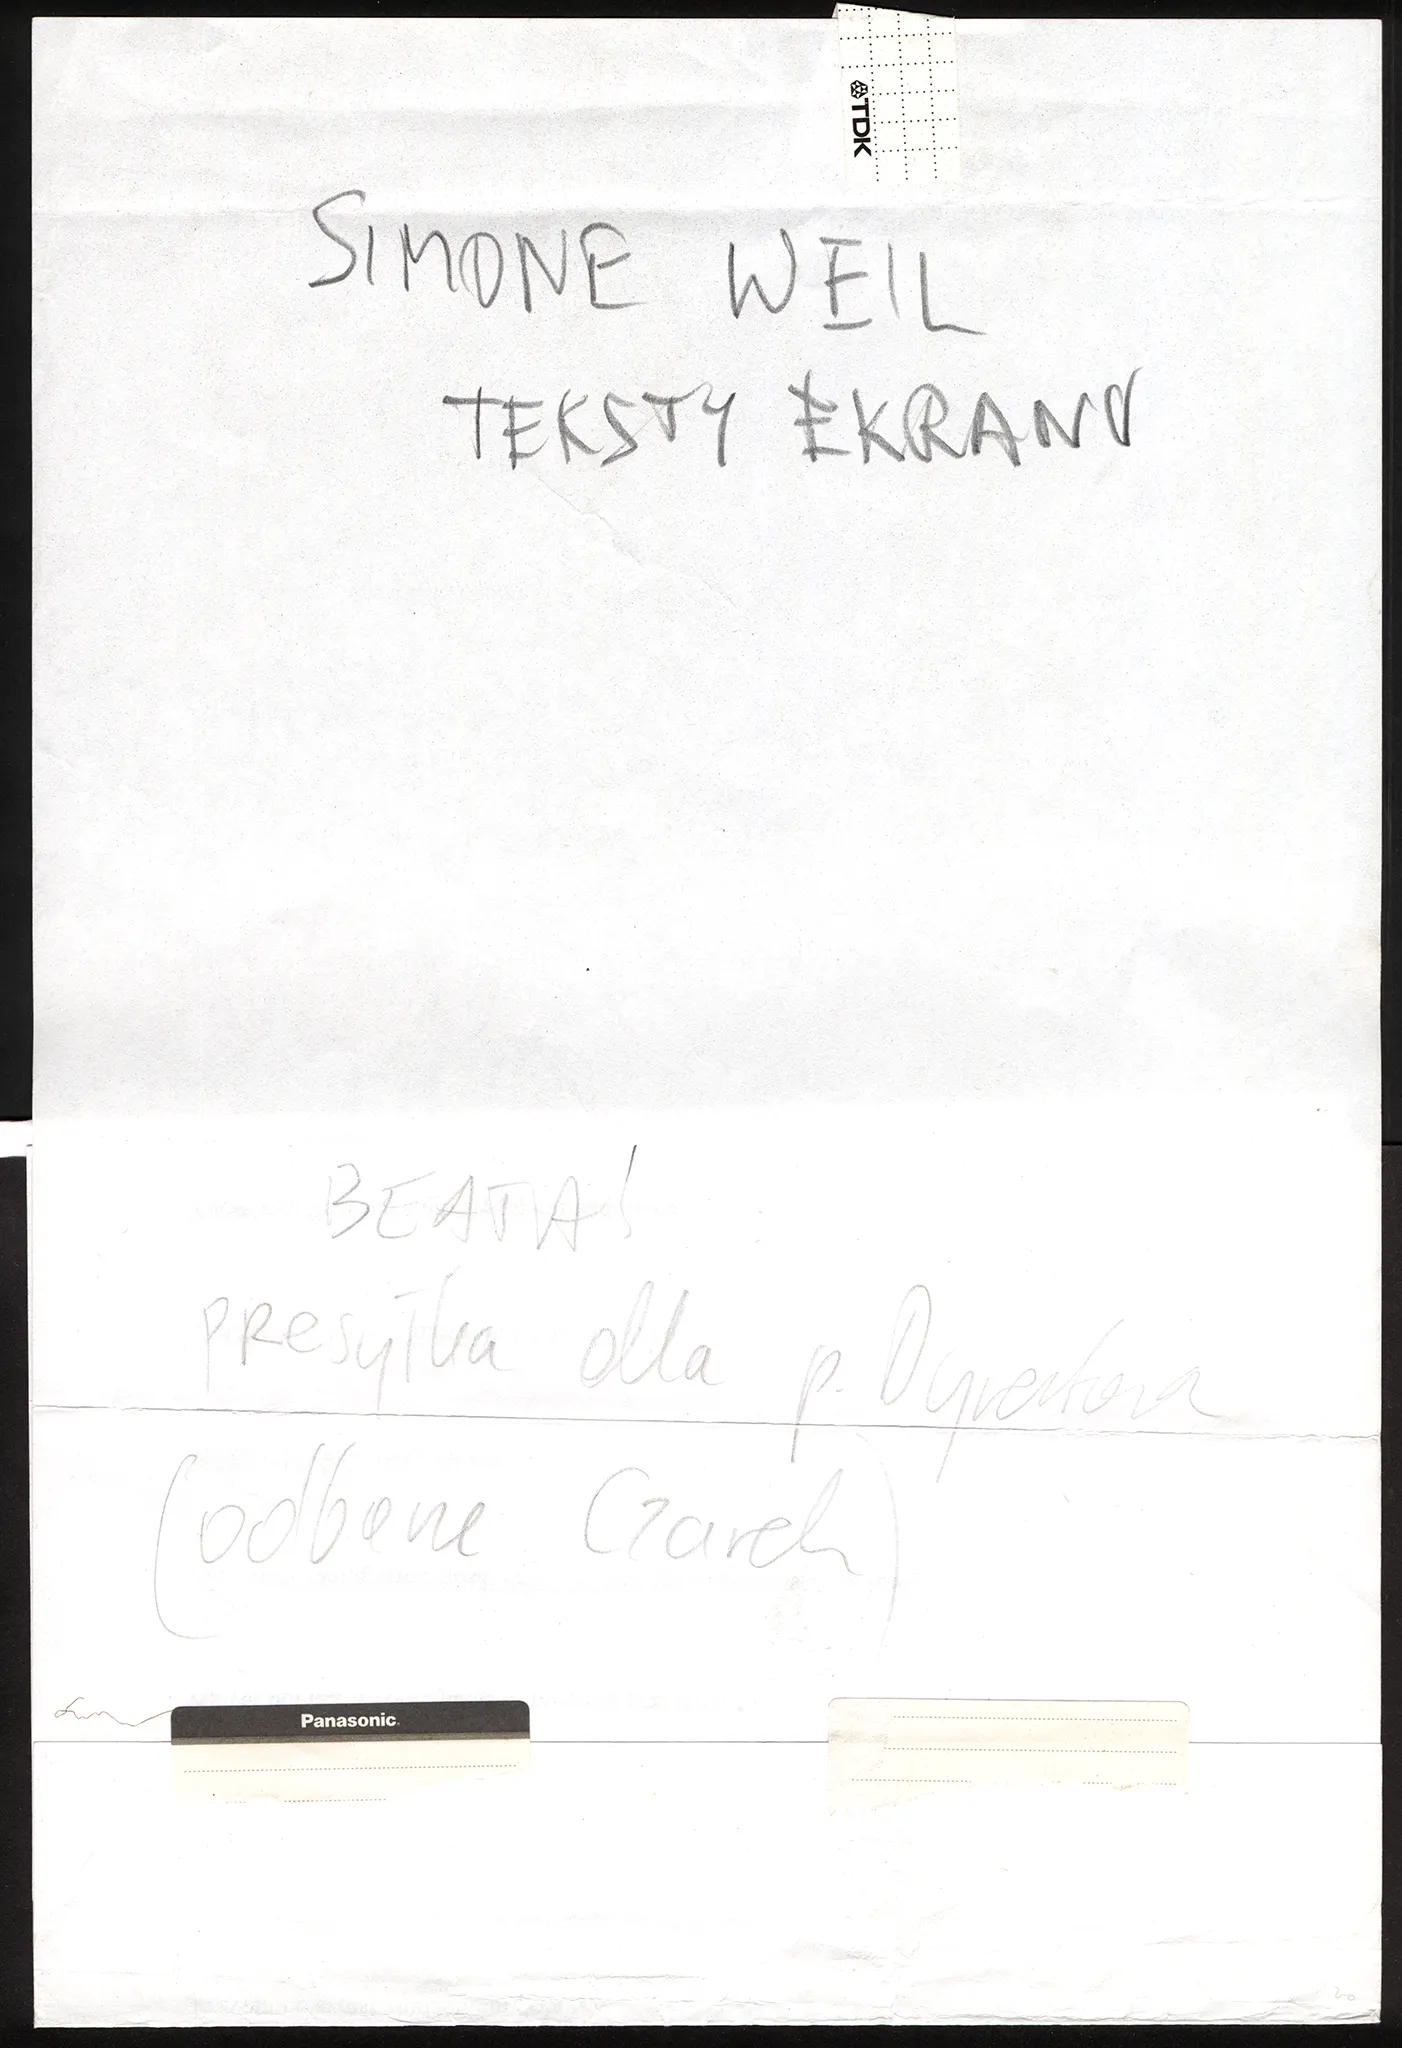 TDK
SIMONE WEIL
TEKSTY EKRANU
BEATA!
PResyłka dla p. Dyrektora
(odbane Czarek)
Panasonic
20